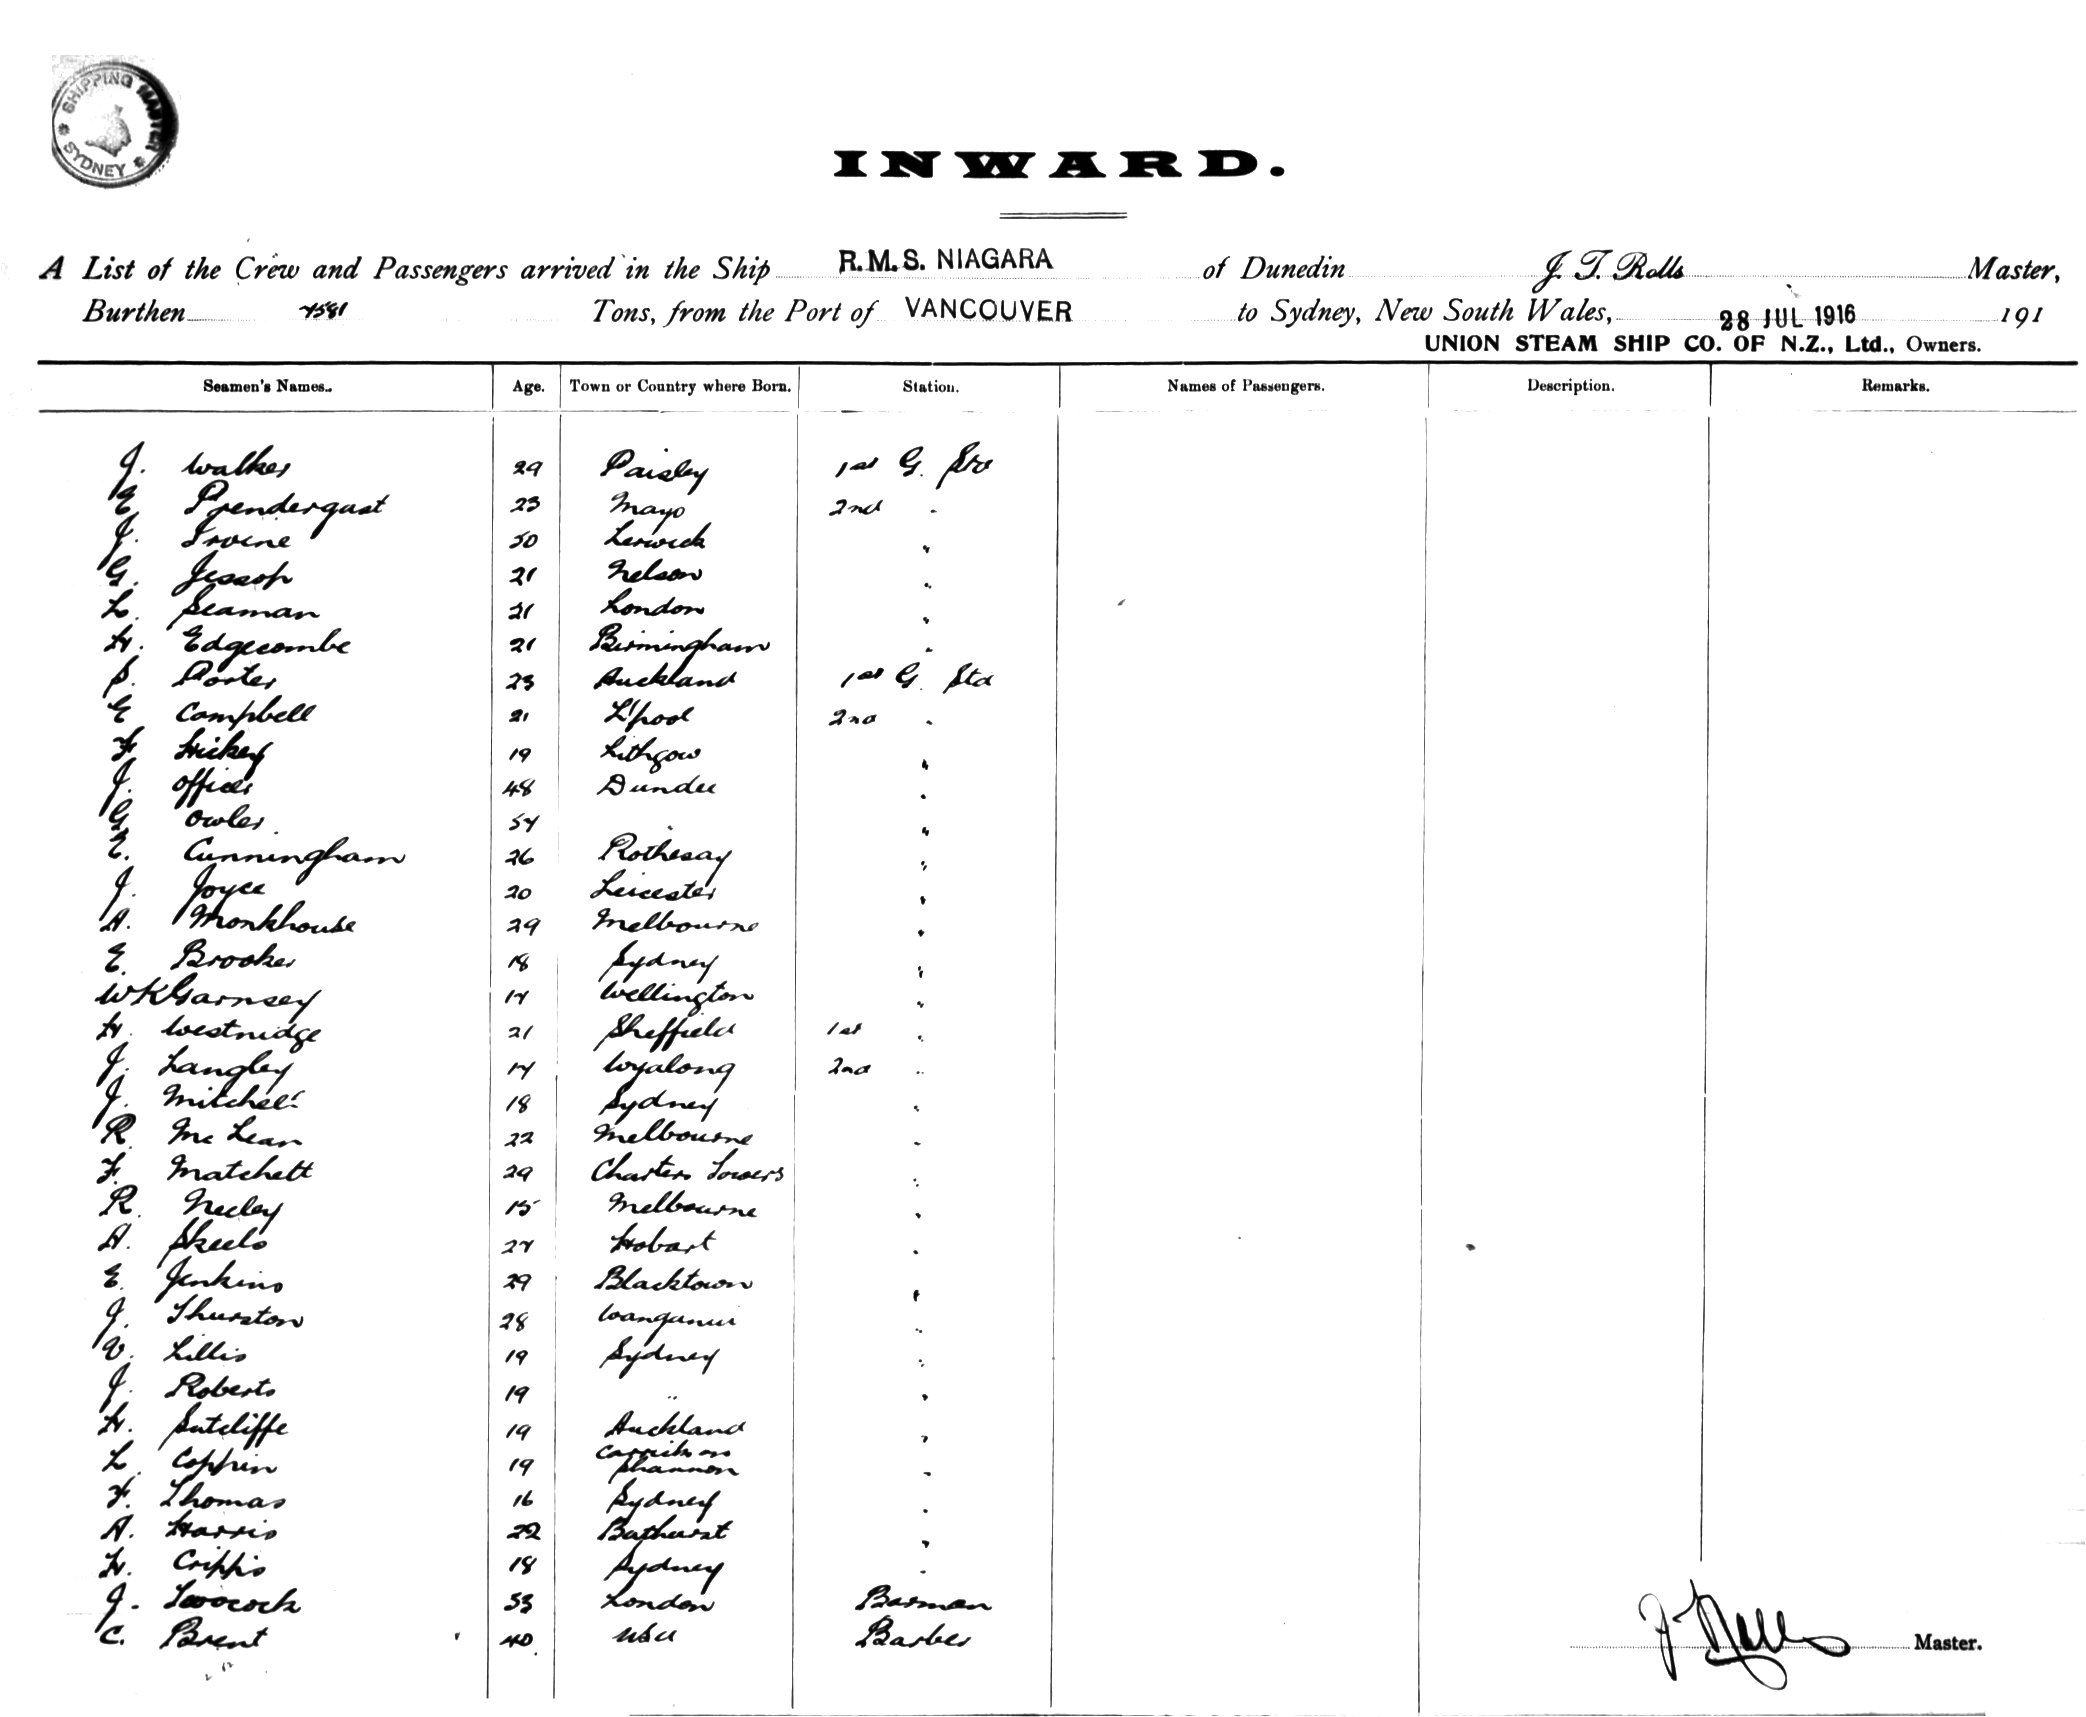 SHIPPING MASTER
* SYDNEY *
INWARD.
A List of the Crew and Passengers arrived in the Ship R.M.S. NIAGARA of Dunedin J. T. Rolls Master,
Burthen 7581 Tons, from the Port of VANCOUVER to Sydney, New South Wales, 28 JUL 1916 191
UNION STEAM SHIP CO. OF N.Z., Ltd., Owners.
Seamen's Names. Age. Town or Country where Born. Station. Names of Passengers. Description. Remarks.
J. Walker 29 Paisley 1st G.
E Prendergast 23 Mayo 2nd "
J. Irvine 50 Lerwick "
G. Jessop 21 Nelson "
L. Seaman 21 London "
H. Edgecombe 21 Birmingham "
S. Porter 23 Auckland 1st G. Std
E Campbell 21 L'pool 2nd "
F. Hickey 19 Lithgow "
J. Officer 48 Dundee "
G Owler 54 " "
E. Cunningham 26 Rothesay "
J. Joyce 20 Leicester "
A. Monkhouse 29 Melbourne "
E. Brooker 18 Sydney "
W K Garnsey 17 Wellington "
H. Westnidge 21 Sheffield 1st "
J. Langley 17 Wyalong 2nd "
J. Mitchell 18 Sydney "
R. McLean 22 Melbourne "
F. Matchett 29 Charters Towers "
R. Neeley 15 Melbourne "
A. Skeels 27 Hobart "
E. Jenkins 29 Blacktown "
J. Thurston 28 Wanganui "
V. Lillis 19 Sydney "
J. Roberts 19 " "
H. Sutcliffe 19 Auckland "
L. Coppin 19 Carrick on Shannon "
F. Thomas 16 Sydney "
A. Harris 22 Bathurst "
H. Cripps 18 Sydney "
J. 53 London Barman
C. Brent 40 USA Barber
J T Rolls Master.